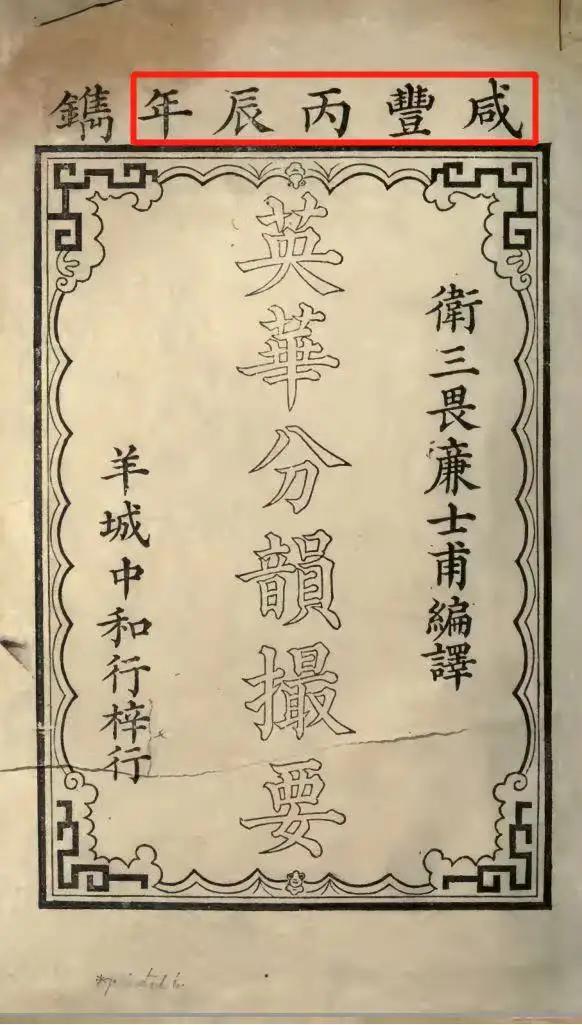 咸豐丙辰年鐫
衛三畏廉士甫編譯
英華分韻撮要
羊城中和行梓行